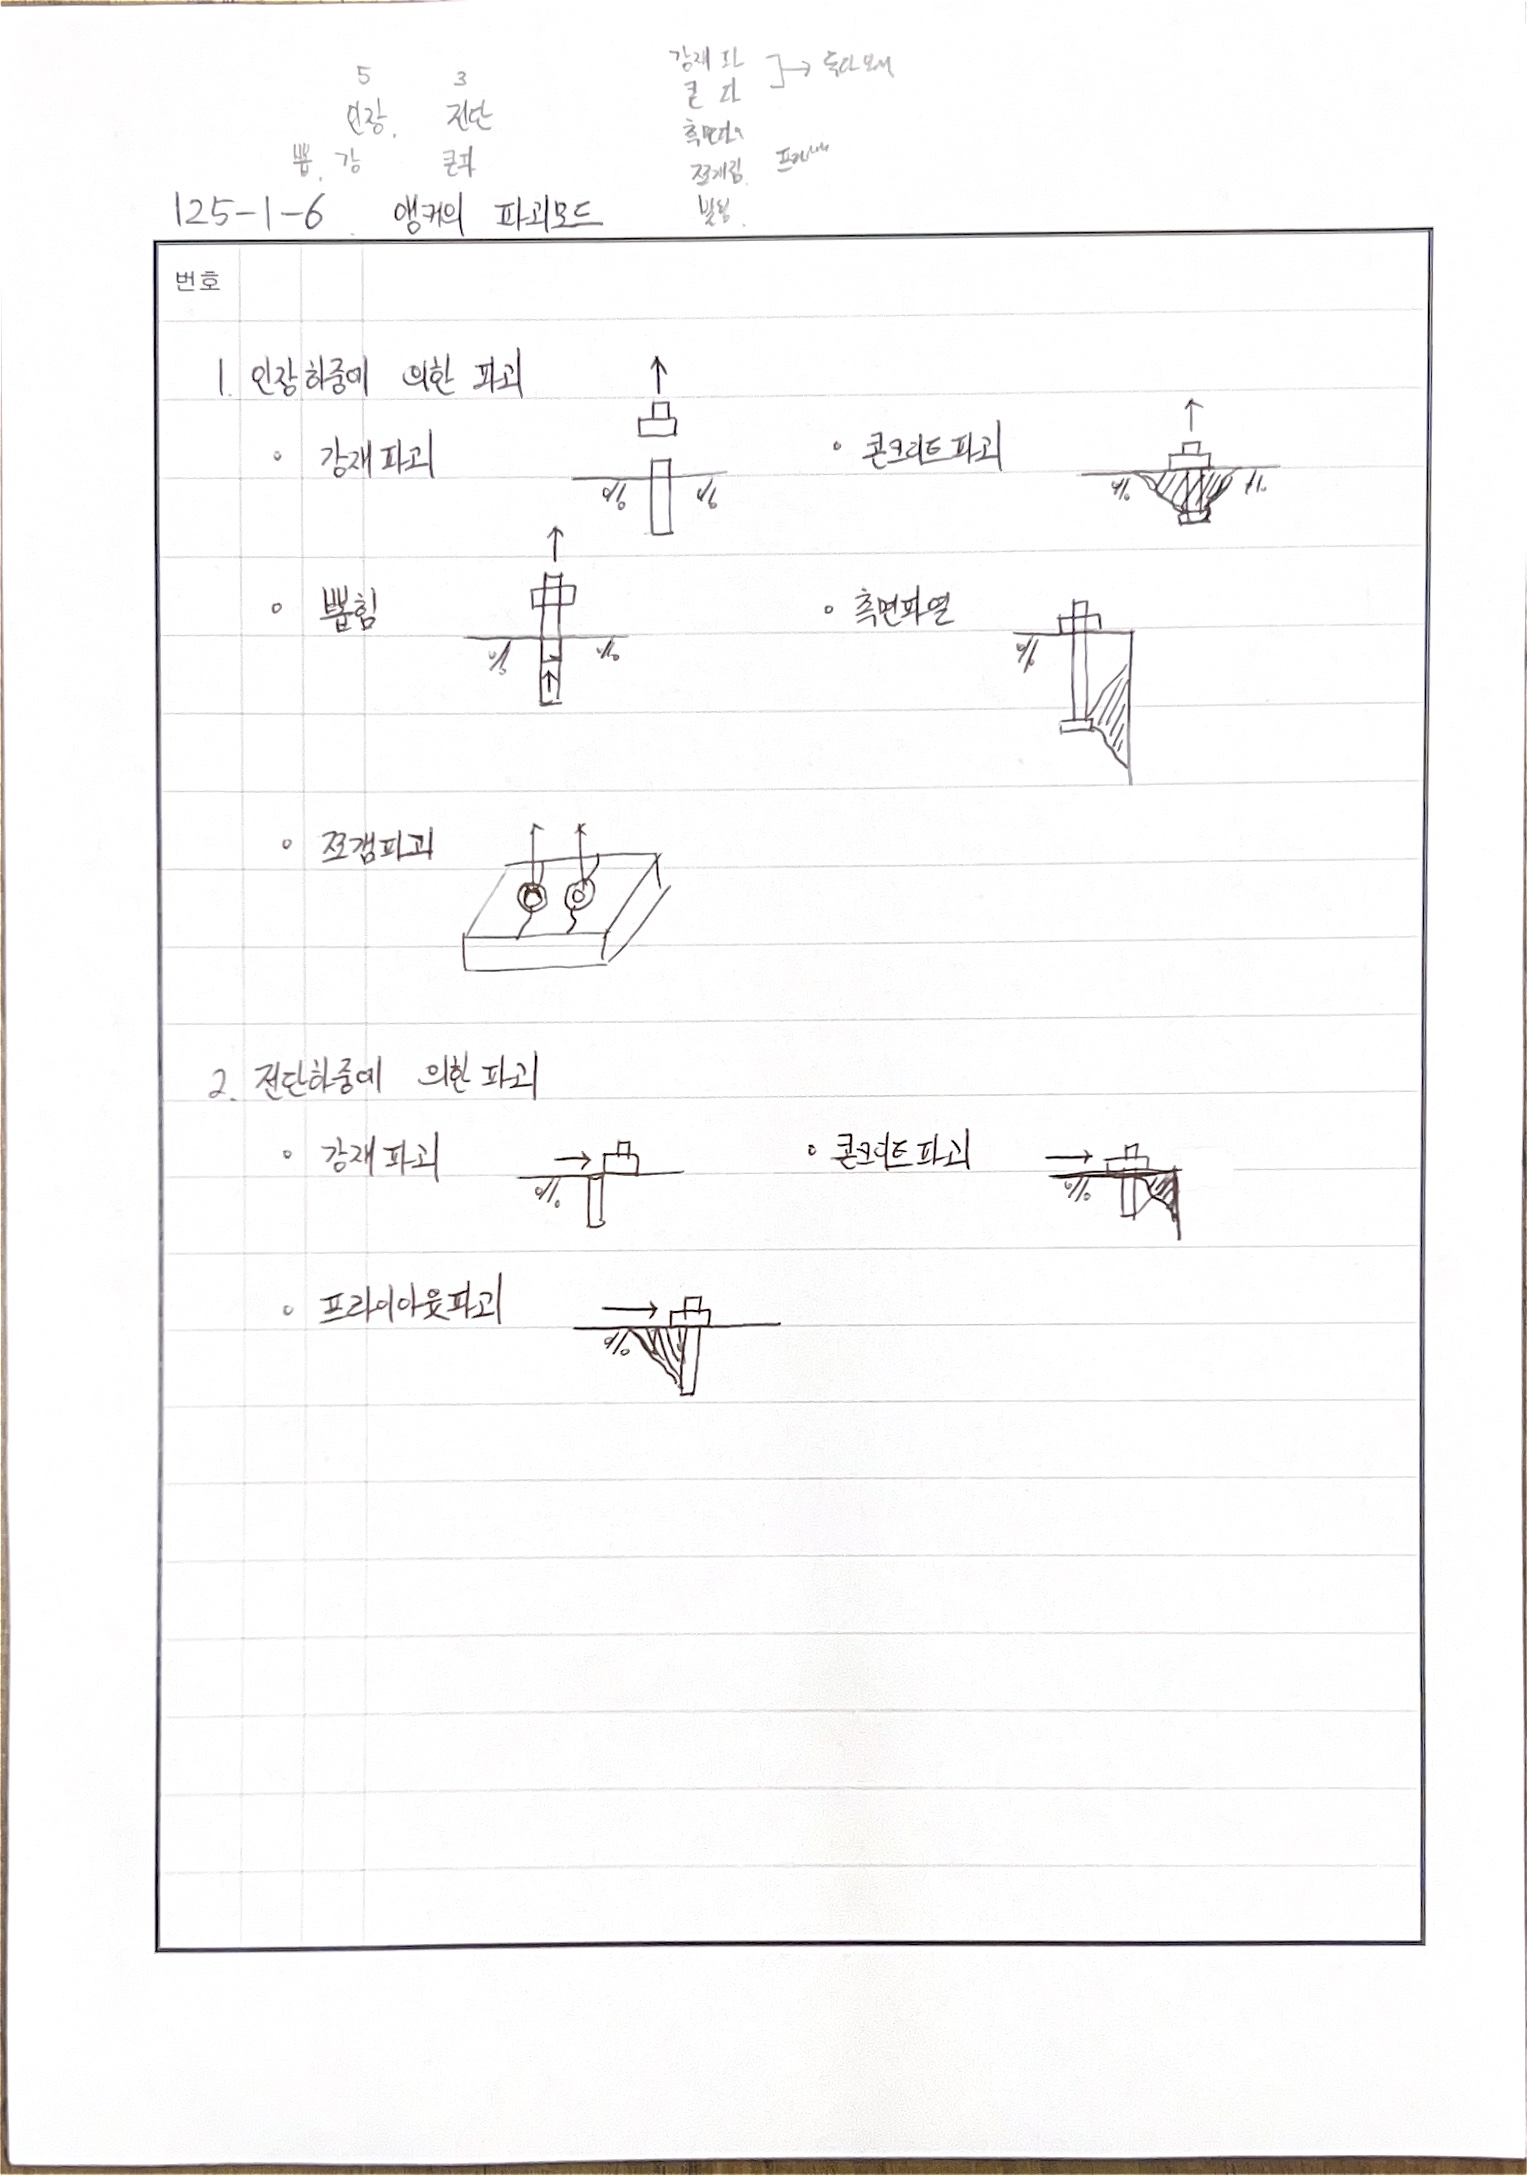 5 3
인장, 전단
뽑, 강 콘파
강재 파
콘 파
쪼개짐,
뽑힘,
125-1-6. 앵커의 파괴모드
번호
1. 인장하중에 의한 파괴
◦ 강재파괴 ◦ 콘크리트파괴
◦ 뽑힘 ◦ 측면파열
◦ 쪼갬파괴
2. 전단하중에 의한파괴
◦ 강재파괴 ◦ 콘크리트파괴
◦ 프라이아웃파괴